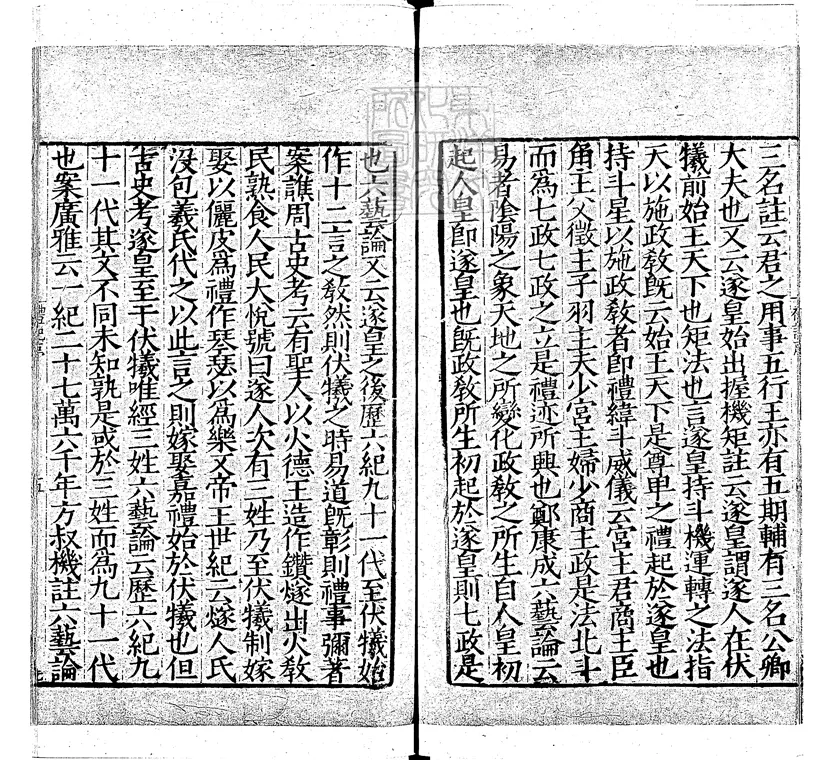 三名註云君之用事五行王亦有五期輔有三名公卿
大夫也又云遂皇始出握機矩註云遂皇謂遂人在伏
犧前始王天下也矩法也言遂皇持斗機運轉之法指
天以施政教旣云始王天下是尊甲之禮起於遂皇也
持斗星以施政教者即禮緯斗威儀云宮主君商主臣
角主父徵主子羽主夫少宮主婦少商主政是法北斗
而爲七政七政之立是禮迹所興也鄭康成六藝論云
易者隂陽之象天地之所變化政教之所生自人皇初
起人皇即遂皇也旣政教所生初起於遂皇則七政是
也六藝論又云遂皇之後歷六紀九十一代至伏犧始
作十二言之教然則伏犧之時易道旣彰則禮事彌著
案譙周古史考云有聖人以火德王造作鑽燧出火教
民熟食人民大悅號曰遂人次有三姓乃至伏犧制嫁
娶以儷皮爲禮作琴瑟以爲樂又帝王世紀云燧人氏
沒包羲氏代之以此言之則嫁娶嘉禮始於伏犧也但
古史考遂皇至于伏犧唯經三姓六藝論云歷六紀九
十一代其文不同未知孰是或於三姓而爲九十一代
也案廣雅云一紀二十七萬六千年方叔機註六藝論